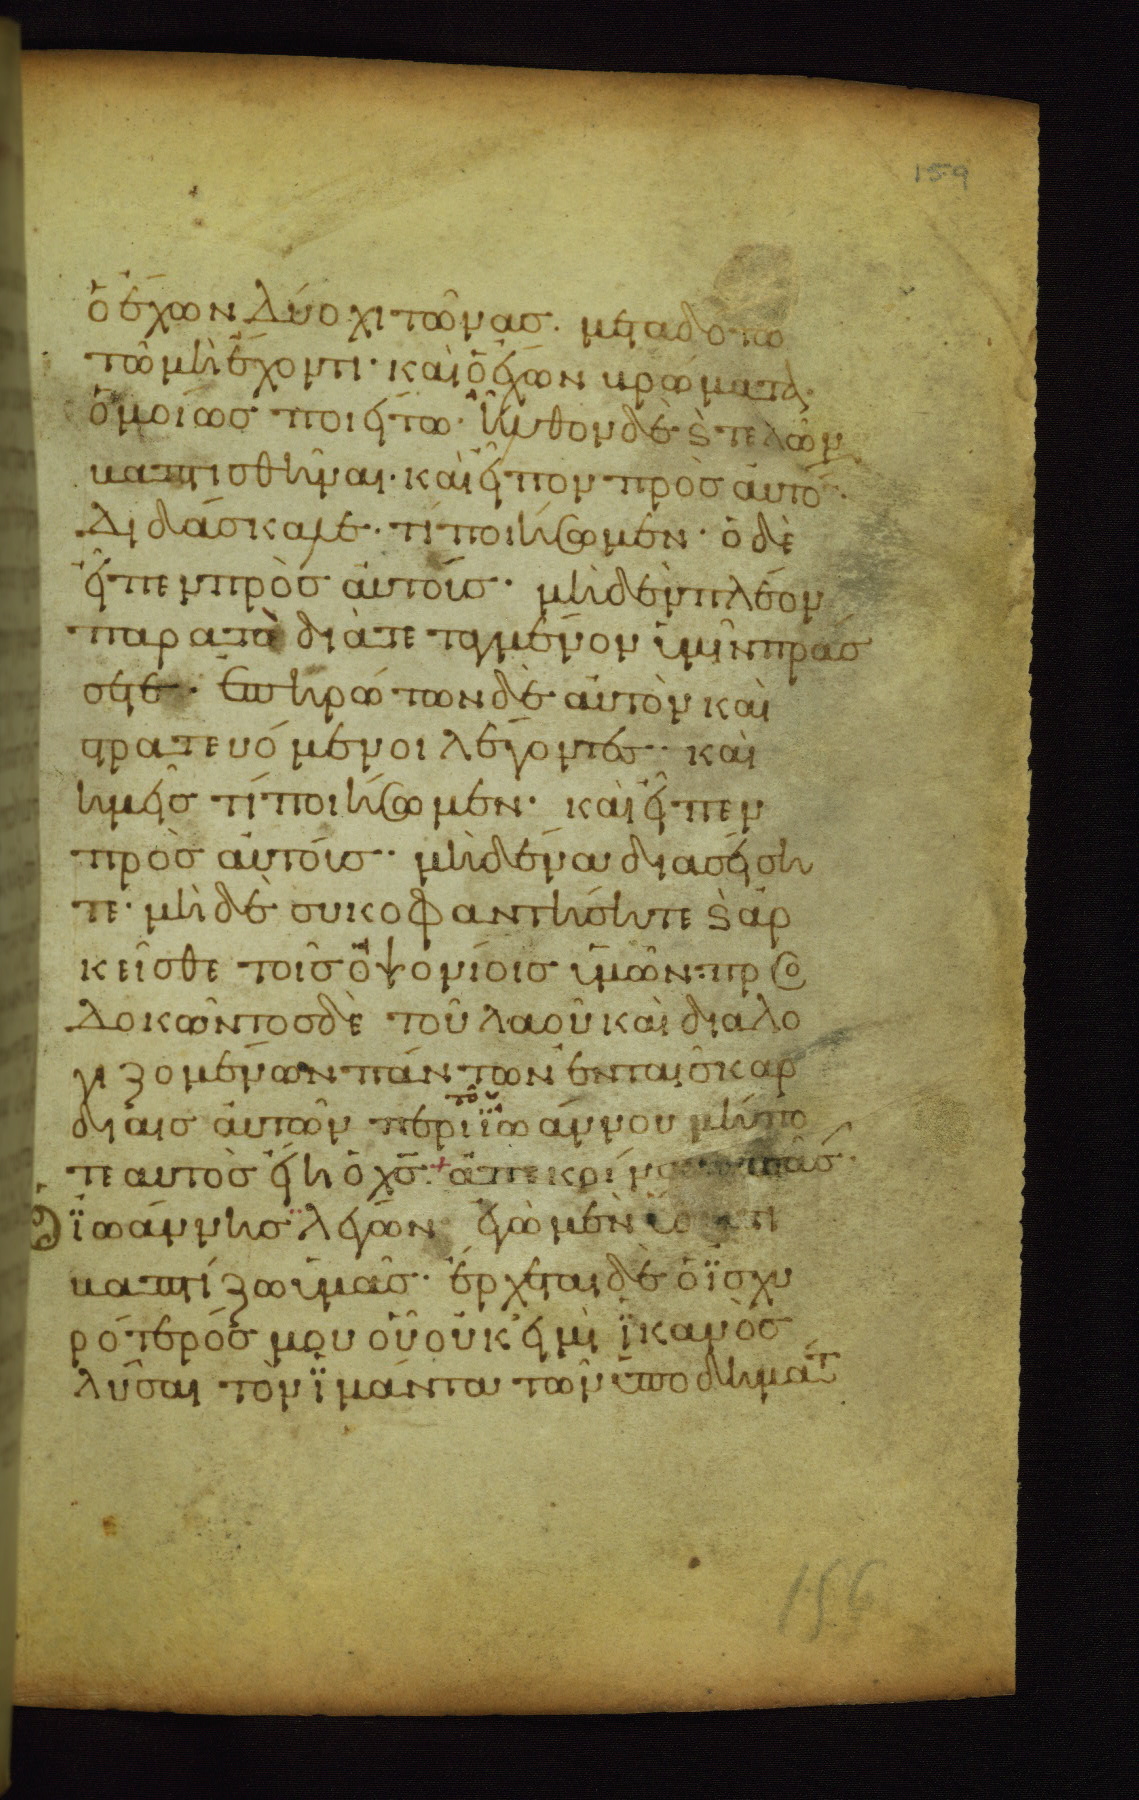 159
ὁ ἔχων δύο χιτῶνας· μεταδότω
τῶ μὴ ἔχοντι· καὶ ὁ ἔχων βρώματα·
ὁμοίως ποιείτω· ἦλθον δὲ ϗ τελῶναι
βαπτισθῆναι· καὶ εἶπον πρὸς αὐτό·
διδάσκαλε· τί ποιήσωμεν· ὁ δὲ
εἶπεν πρὸς αὐτούς· μηδὲν πλέον
παρα τὸ διατεταγμένον ὑμῖν πράσ
σετε· ἐπηρώτων δὲ αὐτὸν καὶ
στρατευόμενοι λέγοντες· καὶ
ἡμεῖς τί ποιήσωμεν· καὶ εἶπεν
πρὸς αὐτοὺς· μηδένα διασείση
τε· μὴ δὲ συκοφαντήσητε ϗ ἀρ
κεῖσθε τοῖς ὀψονίοις ὑμῶν· προσ
δοκῶντος δὲ τοῦ λαοῦ καὶ διαλο
γιζομένων πάντων ἐν ταῖς καρ
δίαις αὐτῶν περὶ τοῦ ϊωάννου μήπο
τε αυτὸς εἴη ὁ χς· + ἀπεκρίνατο
ϊωάννης λέγων ἐγὼ μὲν
βαπτίζω ὑμᾶς· ἔρχεται δὲ ὁ ϊσχυ
ρότερός μου οὗ οὐκ εἰμὶ ϊκανὸς
λῦσαι τὸν ϊμάντα τῶν ὑποδημάτ
156